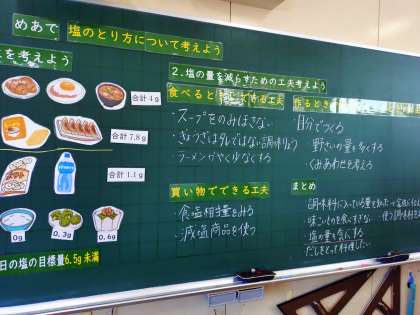 めあて 塩のとり方について考えよう
を考えよう
合計4g
合計7.8g
合計1.1g
0g
0.3g
0.6g
日の塩の目標量6.5g未満
2.塩の量を減らすための工夫考えよう
食べるとき できる工夫
・スープをのみほさない
・ぎょうざはタレではない調味りょう
・ラーメンでやく少なくする
買い物でできる工夫
・食塩相当量をみる
・減塩商品を使う
作るとき
・自分でつくる
野さいの量を多くする
・くみあわせも考える
まとめ
調味料に入っている量を知って
・味こいものを食べすぎない 使う調味料
塩の量を気にする
だしをとって料理したい